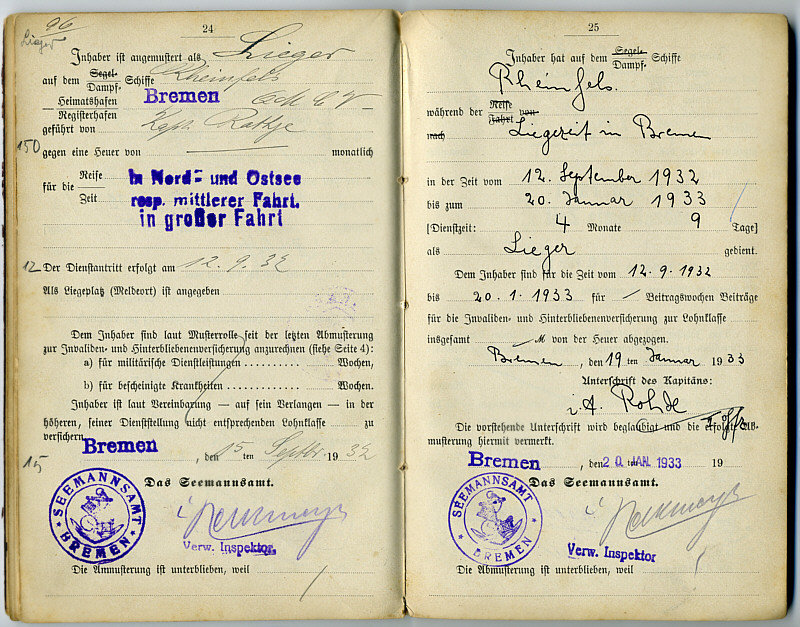 96
Lieger
24
Inhaber ist angemustert als Lieger
auf dem Segel- Dampf- Schiffe Rheinfels
Heimatshafen
Registerhafen Bremen
geführt von Kapt. Rathje
150
gegen eine Heuer von monatlich
für die Reise
Zeit
In Nord- und Ostsee
resp. mittlerer Fahrt.
in großer Fahrt
12
Der Dienstantritt erfolgt am 12.9.32
Als Liegeplatz (Meldeort) ist angegeben
Dem Inhaber sind laut Musterrolle seit der letzten Abmusterung
zur Invaliden- und Hinterbliebenenversicherung anzurechnen (siehe Seite 4):
a) für militärische Dienstleistungen Wochen,
b) für bescheinigte Krankheiten Wochen.
Inhaber ist laut Vereinbarung — auf sein Verlangen — in der
höheren, seiner Dienststellung nicht entsprechenden Lohnklasse zu
versichern.
Bremen, den 15 ten Septbr. 1932
15
Das Seemannsamt.
SEEMANNSAMT
BREMEN
Verw. Inspektor
Die Anmusterung ist unterblieben, weil
25
Inhaber hat auf dem Segel- Dampf- Schiffe
Rheinfels.
während der Reise Fahrt von
nach Liegezeit in Bremen
in der Zeit vom 12. September 1932
bis zum 20. Januar 1933
[Dienstzeit: 4 Monate 9 Tage]
als Lieger gedient.
Dem Inhaber sind für die Zeit vom 12.9.1932
bis 20.1.1933 für — Beitragswochen Beiträge
für die Invaliden- und Hinterbliebenenversicherung zur Lohnklasse
insgesamt — M von der Heuer abgezogen.
Bremen, den 19 ten Januar 1933
Unterschrift des Kapitäns:
i.A. Rohde
Die vorstehende Unterschrift wird beglaubigt und die erfolgte Ab-
musterung hiermit vermerkt.
Bremen, den 20. JAN. 1933 19
Das Seemannsamt.
SEEMANNSAMT
BREMEN
Verw. Inspektor
Die Abmusterung ist unterblieben, weil